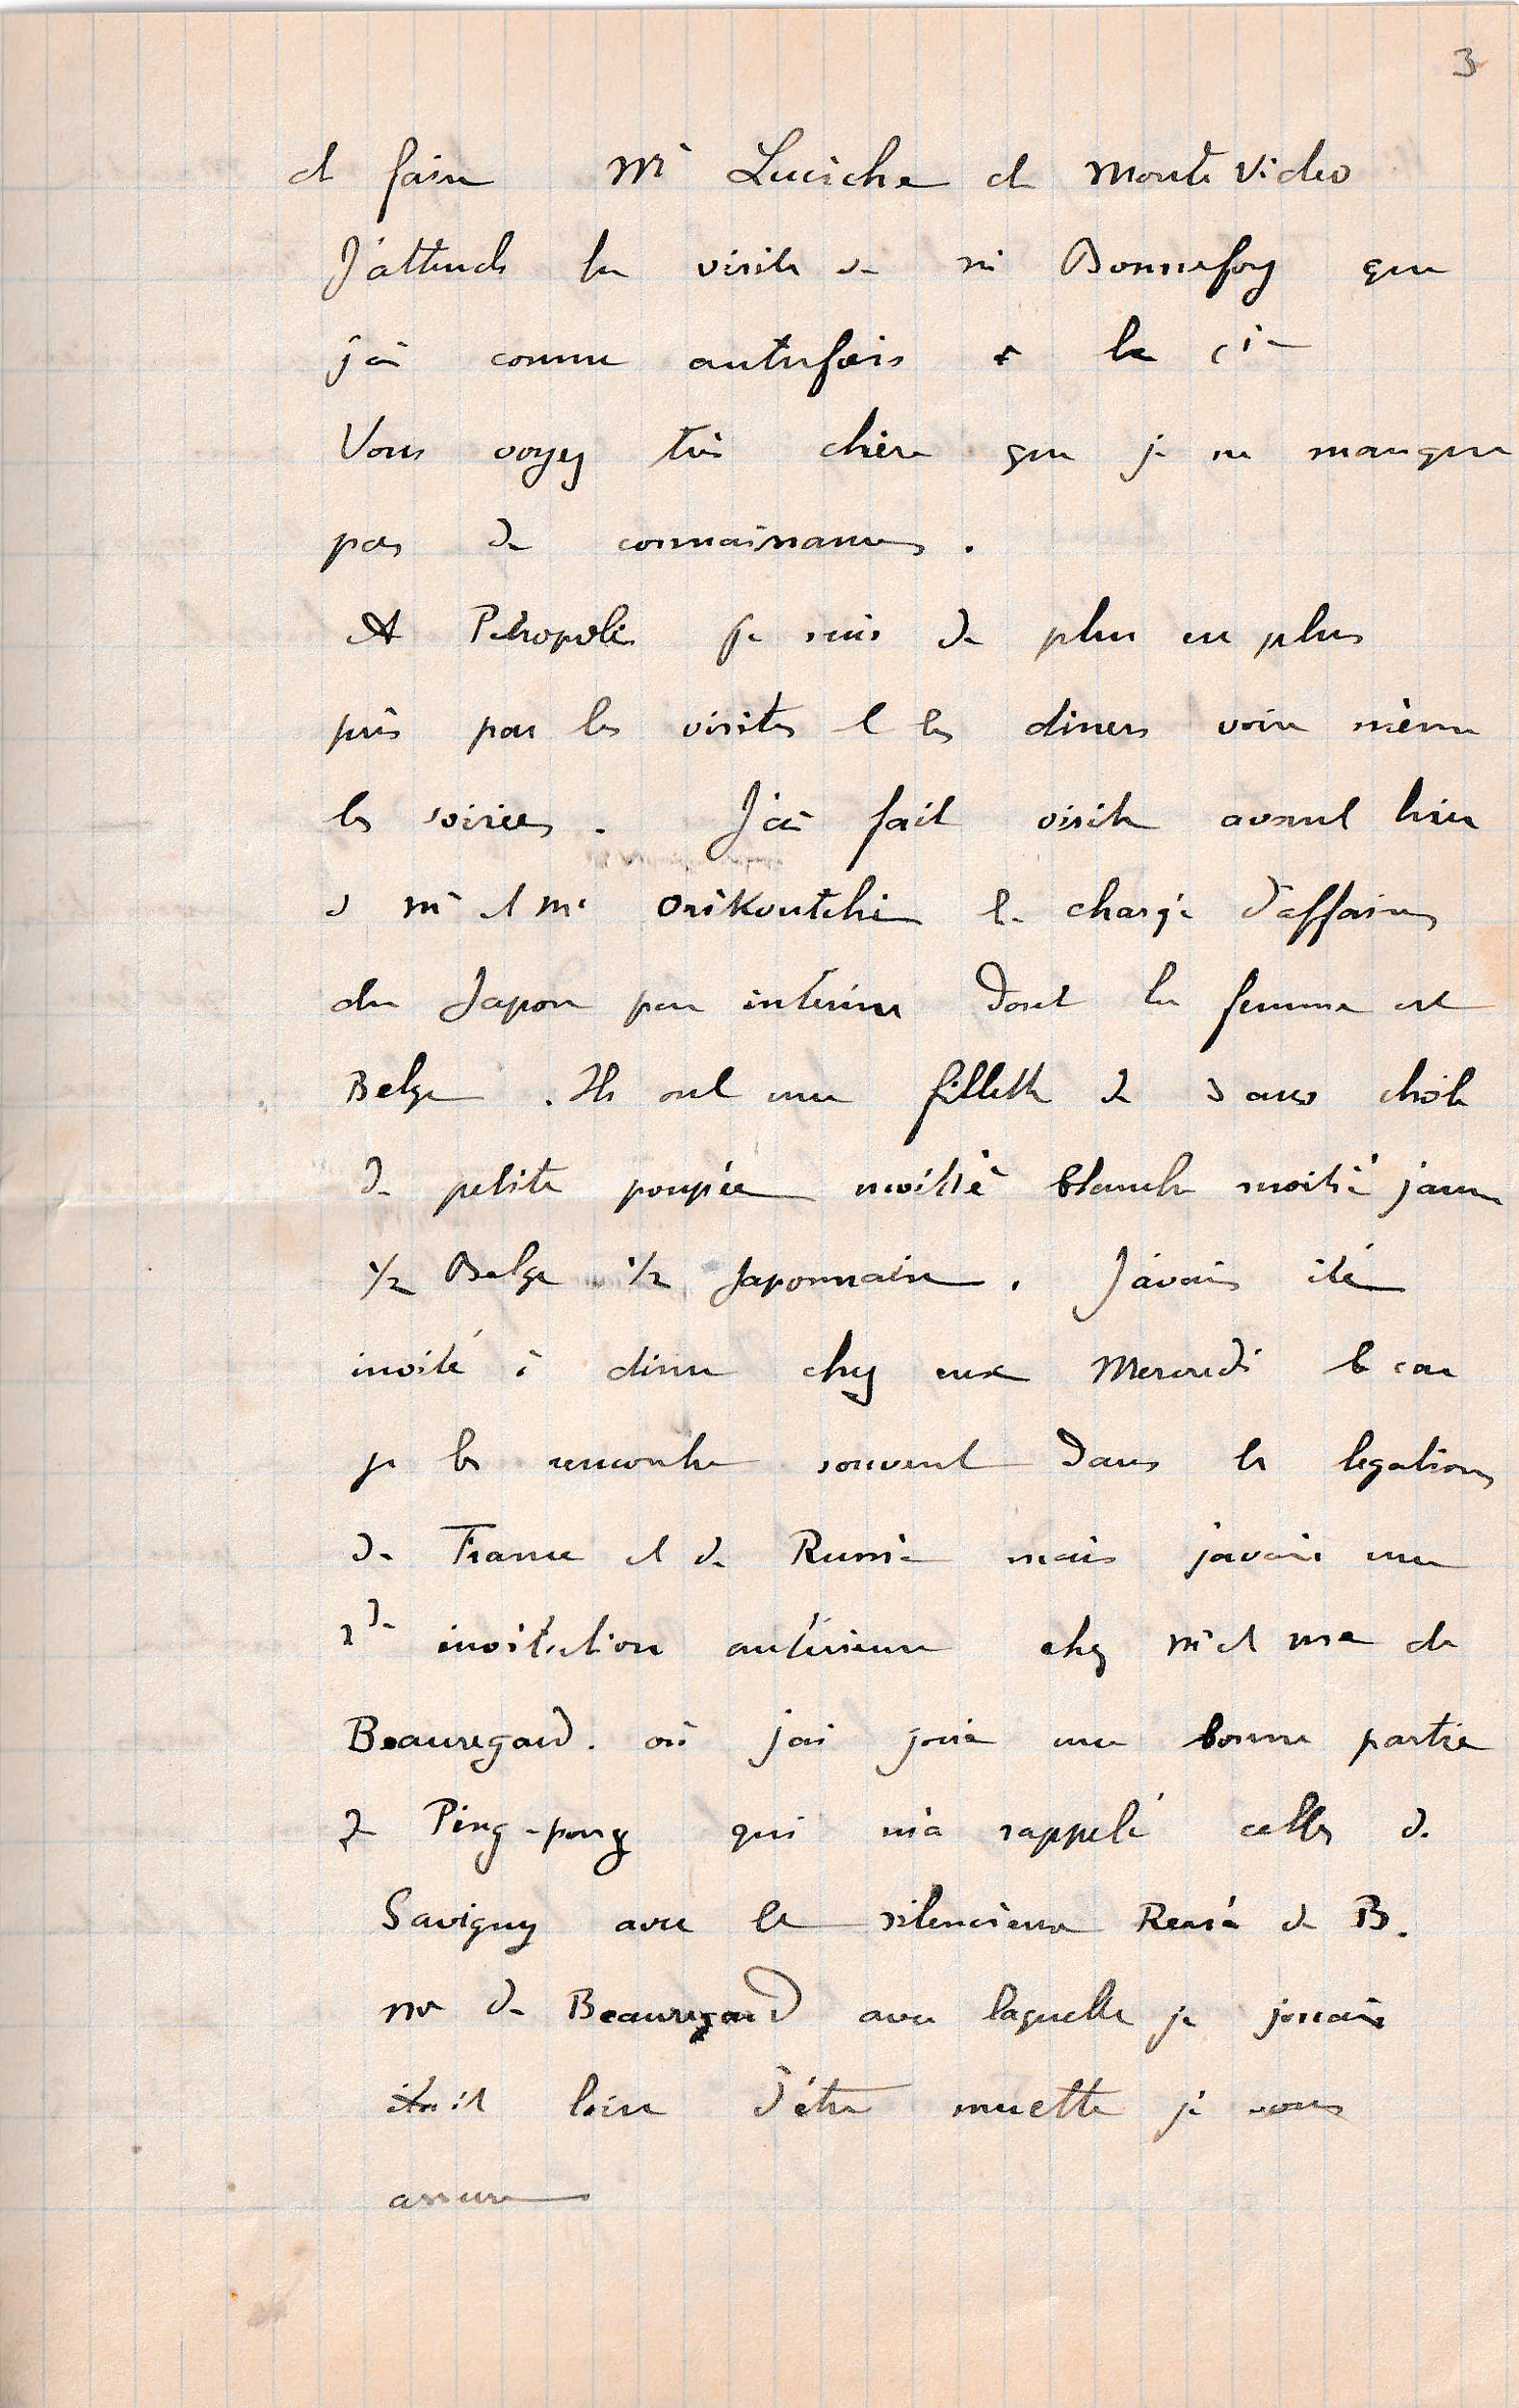 3
et faire Mr Luciche de Monte Video
J'attends la visite de Mr Bonnefoy que
j'ai connu autrefois à la Cie
Vous voyez très chère que je ne manque
pas de connaissances.
A Petropolis je suis de plus en plus
pris par les visites et les diners voire même
les soirées. J'ai fait visite avant hier
à Mr et Me Orikoutchi le chargé d'affaires
du Japon par intérim dont la femme est
Belge. Ils ont une fillette de 3 ans drôle
de petite poupée moitié blanche moitié jaune
1/2 Belge 1/2 Japonnaise. J'avais été
invité à diner chez eux Mercredi car
je les rencontre souvent dans les legations
de France et de Russie mais j'avais une
2de invitation antérieure chez Mr et Me de
Beauregard. où j'ai joué une bonne partie
de Ping-pong qui m'a rappelé celles de
Savigny avec le silencieux René de B.
Me de Beauregard avec laquelle je jouais
était loin d'être muette je vous
assure